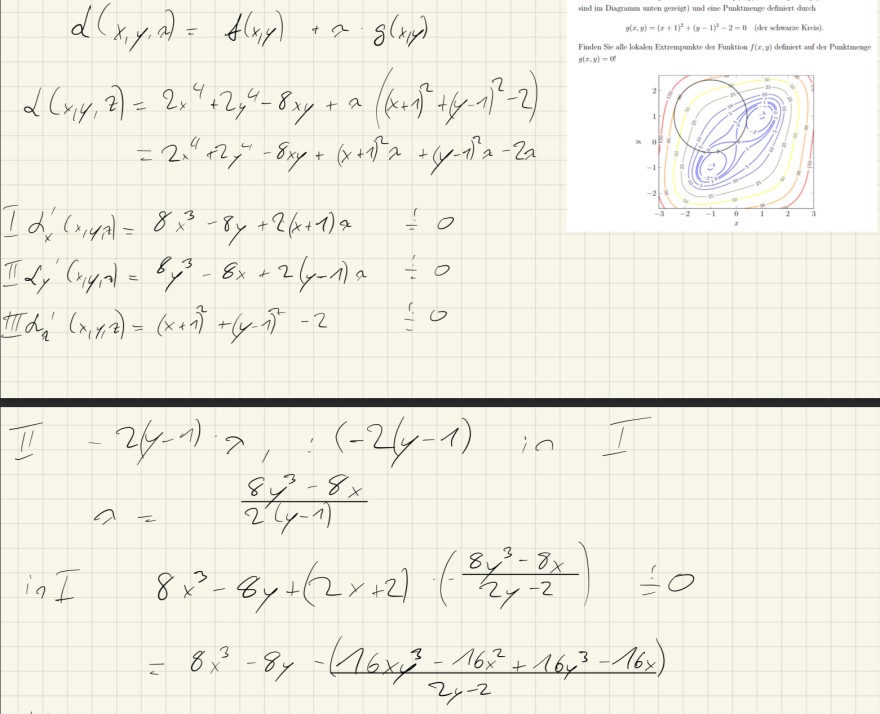 L(x,y,λ) = f(x,y) + λ · g(x,y)
L(x,y,z) = 2x⁴ + 2y⁴ - 8xy + λ ((x+1)² + (y-1)² - 2)
= 2x⁴ + 2y⁴ - 8xy + (x+1)²λ + (y-1)²λ - 2λ
I Lx' (x,y,λ) = 8x³ - 8y + 2(x+1)λ != 0
II Ly' (x,y,λ) = 8y³ - 8x + 2(y-1)λ != 0
III Lλ' (x,y,z) = (x+1)² + (y-1)² - 2 != 0
sind im Diagramm unten gezeigt) und eine Punktmenge definiert durch
g(x,y) = (x + 1)² + (y − 1)² − 2 = 0 (der schwarze Kreis).
Finden Sie alle lokalen Extrempunkte der Funktion f(x,y) definiert auf der Punktmenge
g(x,y) = 0!
y
2
1
0
−1
−2
−3 −2 −1 0 1 2 3
x
II - 2(y-1) · λ, : (-2(y-1) in I
λ = (8y³ - 8x)/(2(y-1))
in I 8x³ - 8y + (2x+2) · (- (8y³ - 8x)/(2y-2)) != 0
= 8x³ - 8y - (16xy³ - 16x² + 16y³ - 16x)/(2y-2)